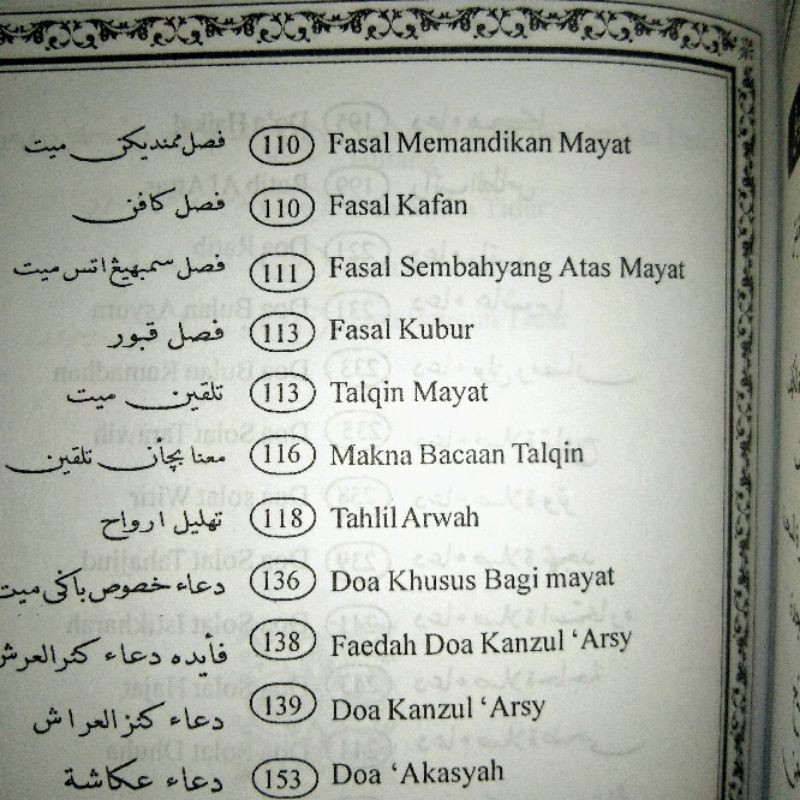 فصل ممنديکن ميت 110 Fasal Memandikan Mayat
فصل کافن 110 Fasal Kafan
فصل سمبهيڠ اتس ميت 111 Fasal Sembahyang Atas Mayat
فصل قبور 113 Fasal Kubur
تلقين ميت 113 Talqin Mayat
معنا بچأن تلقين 116 Makna Bacaan Talqin
تهليل ارواح 118 Tahlil Arwah
دعاء خصوص باکي ميت 136 Doa Khusus Bagi mayat
فأيده دعاء کنز العرش 138 Faedah Doa Kanzul ‘Arsy
دعاء کنز العراش 139 Doa Kanzul ‘Arsy
دعاء عکاشة 153 Doa ‘Akasyah